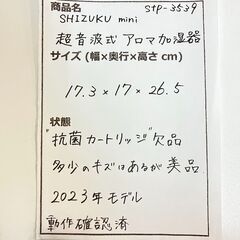 商品名 stp-3539
SHIZUKU mini
超音波式 アロマ加湿器
サイズ (幅×奥行×高さ cm)
17.3 × 17 × 26.5
状態
"抗菌カートリッジ"欠品
多少のキズはあるが美品
2023年モデル
動作確認済